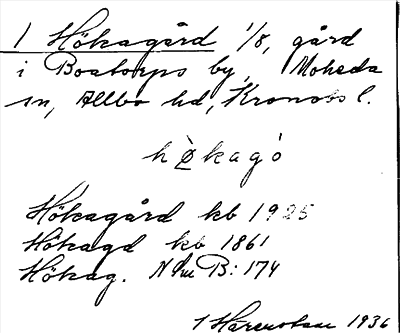 1 Hökagård 1/8, gård
i Boatorps by, Moheda
sn, Allbo hd, Kronobs l.
hø̀kagó
Hökagård kb 1925
Hökagd kb 1861
Hökag. N B: 174
1 1936